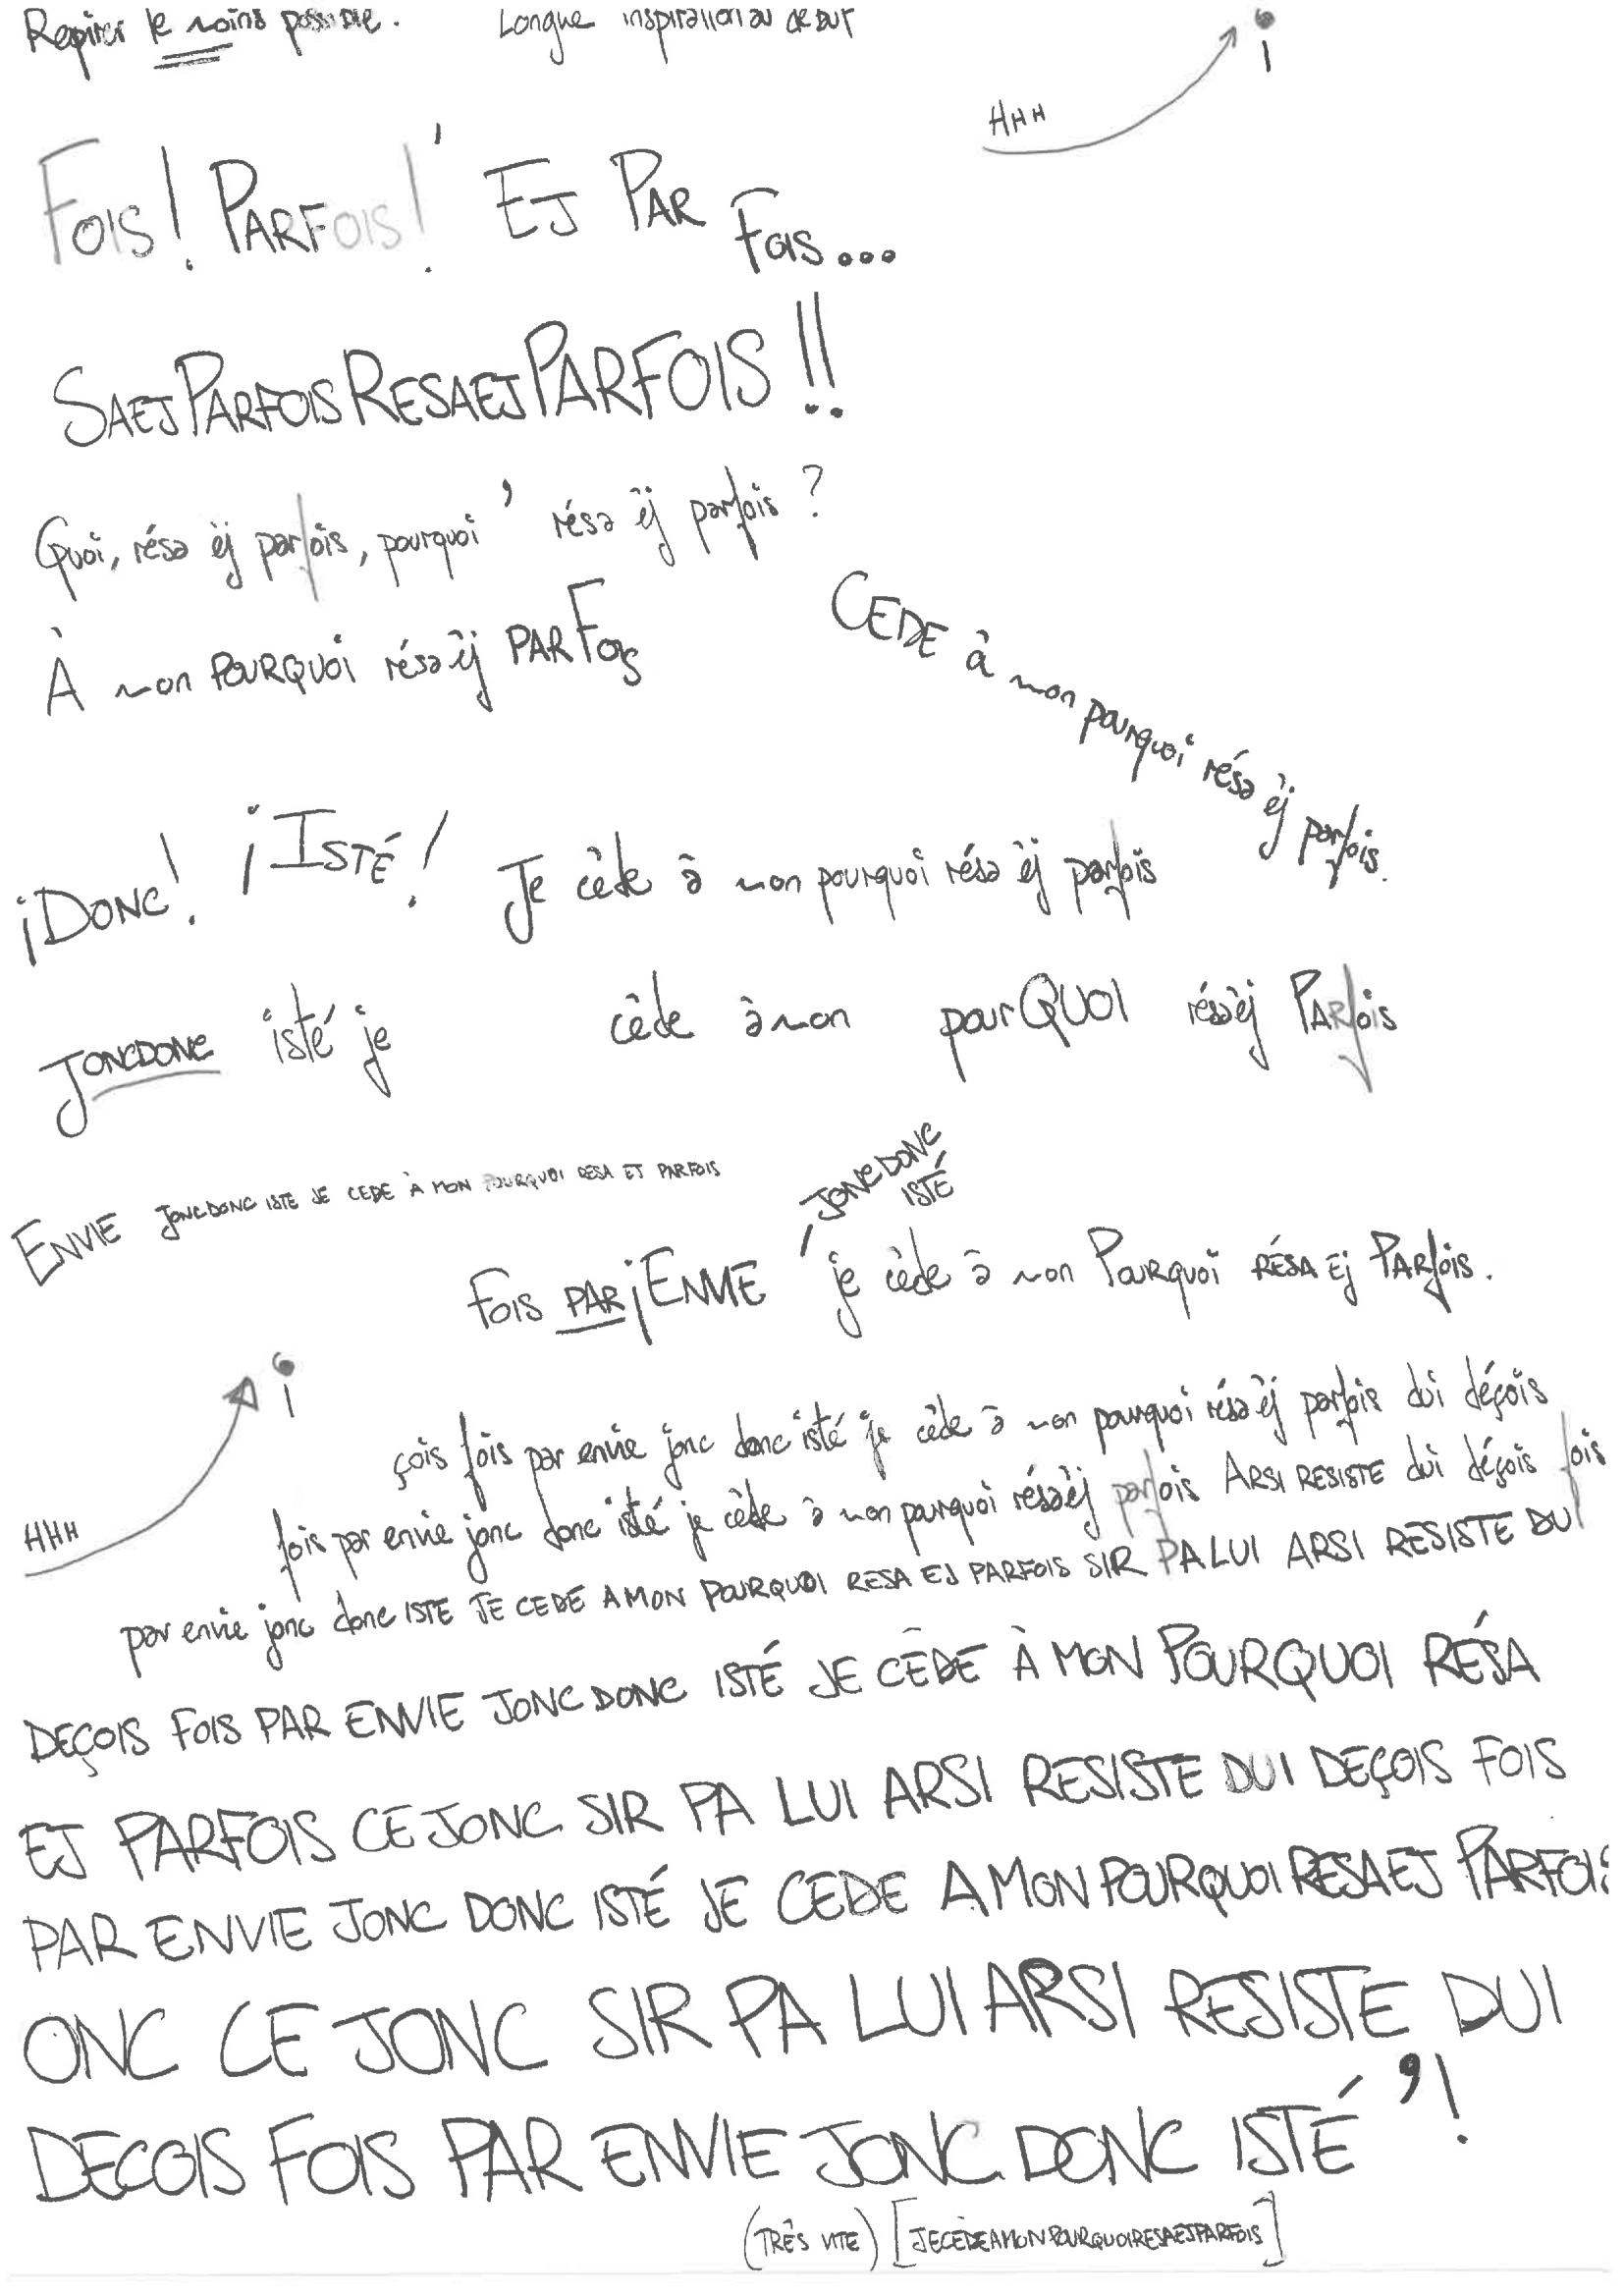 Repirer le moins possible. Longue inspiration au début
HHH
FOIS! PARFOIS! ' EJ PAR FOIS...
SAEJPARFOISRESAEJPARFOIS!!
Quoi, résa èj parfois, pourquoi ' résa èj parfois ?
À mon POURQUOI résa èj PARFOIS
CEDE à mon pourquoi résa èj parfois.
¡DONC! ¡ISTÉ! Je cède à mon pourquoi résa èj parfois
JONCDONC isté je cède à mon pourQUOI résa èj PARfois
ENVIE JONCDONC ISTE JE CEDE À MON POURQUOI RESA ET PARFOIS
JONCDONC
ISTÉ
FOIS PAR ¡ENVIE ' je cède à mon POURQUOI RÉSA EJ PARfois.
HHH
çois fois par envie jonc donc isté je cède à mon pourquoi résa èj parfois dui déçois
fois par envie jonc donc isté je cède à mon pourquoi résa èj parfois ARSI RESISTE dui déçois fois
par envie jonc donc ISTE JE CEDE A MON POURQUOI RESA EJ PARFOIS SIR PA LUI ARSI RESISTE DUI
DEÇOIS FOIS PAR ENVIE JONC DONC ISTÉ JE CÈDE À MON POURQUOI RÉSA
EJ PARFOIS CE JONC SIR PA LUI ARSI RESISTE DUI DEÇOIS FOIS
PAR ENVIE JONC DONC ISTÉ JE CEDE A MON POURQUOI RESA EJ PARFOIS
ONC CE JONC SIR PA LUI ARSI RESISTE DUI
DEÇOIS FOIS PAR ENVIE JONC DONC ISTÉ '!
(TRÈS VITE) [JECÈDEAMONPOURQUOIRESAEJPARFOIS]